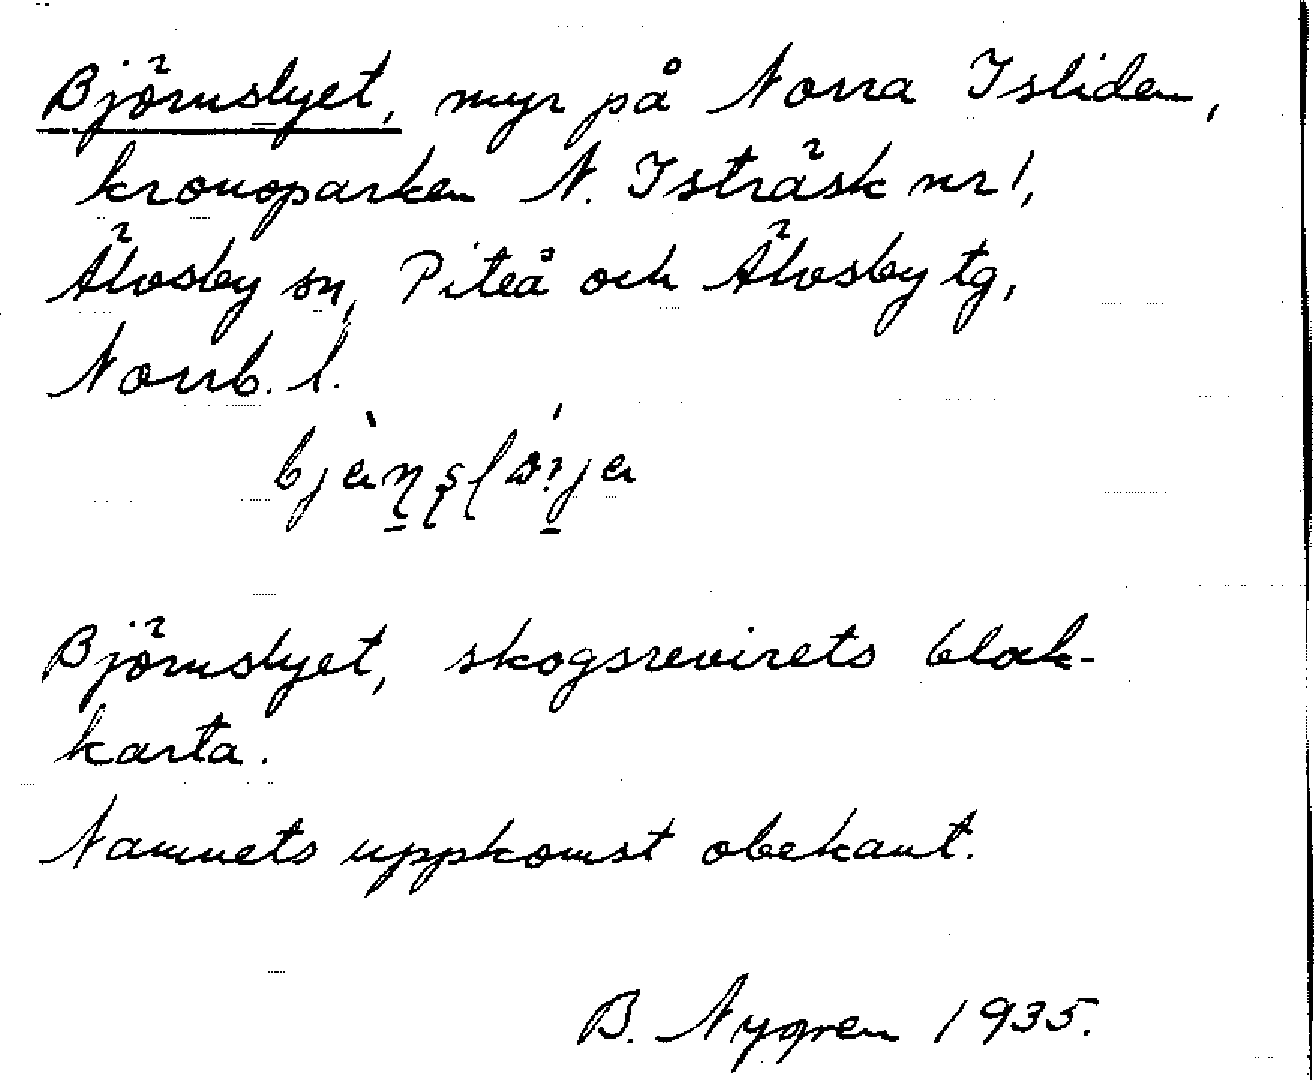 Björnslyet, myr på Norra Isliden,
kronoparken N. Isträsk nr 1,
Älvsby sn, Piteå och Älvsby tg,
Norrb. l.
Björnslyet, skogsrevirets block-
karta.
Namnets uppkomst obekant.
B. Nygren 1935.